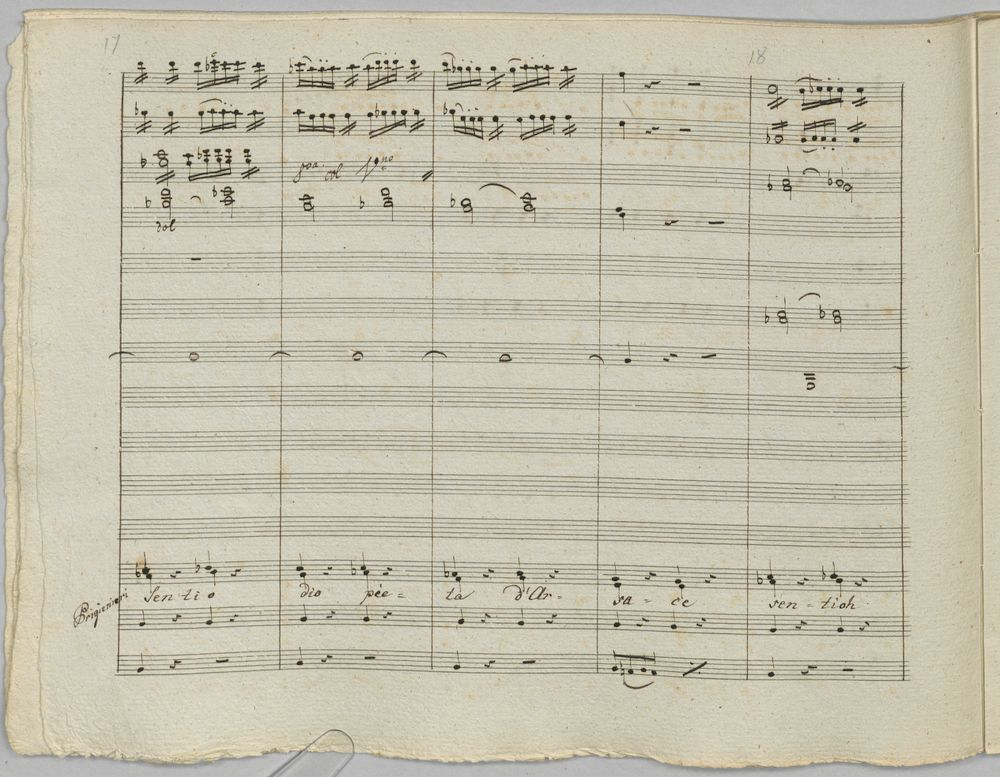 17
18
8va col Pmo
Sol
Prigionieri
Senti o dio pie= tà d'Ar= sa= ce sen= tioh